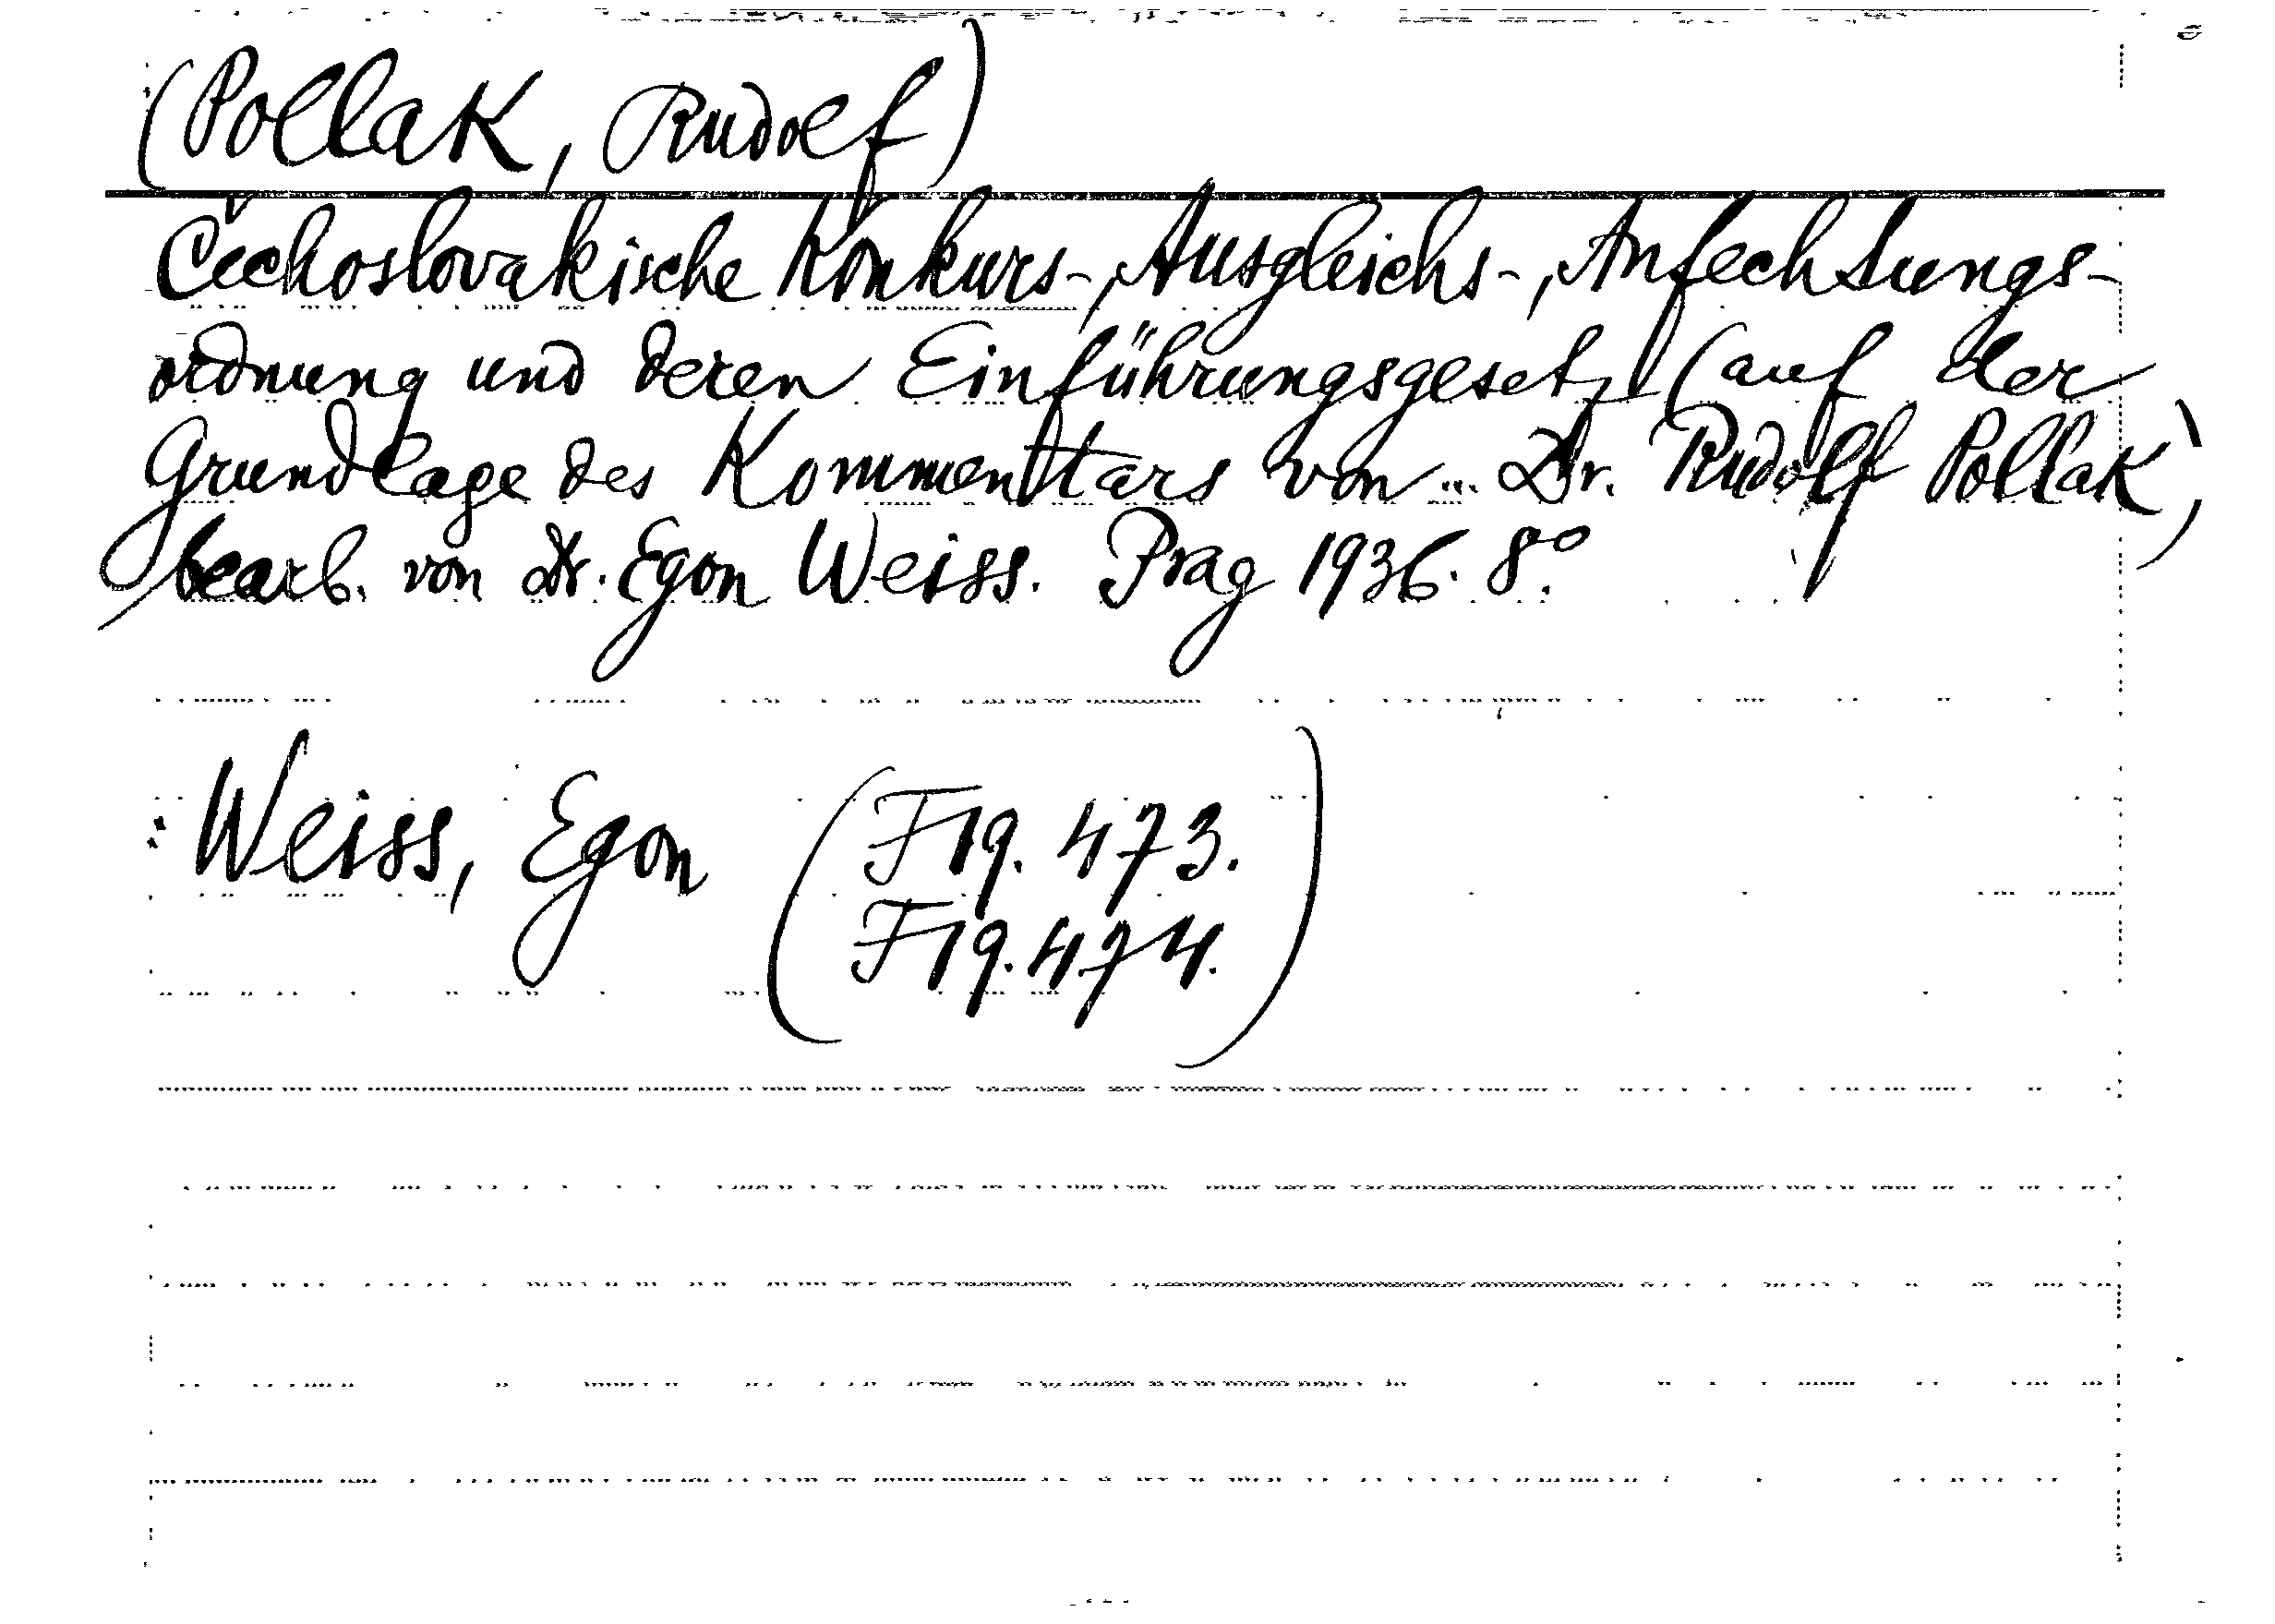 (Pollak, Rudolf)
Čechoslovakische Konkurs-, Ausgleichs-, Anfechtungs-
ordnung und deren Einführungsgesetz (auf der
Grundlage des Kommentars von ... Dr. Rudolf Pollak),
bearb. von Dr. Egon Weiss. Prag 1936. 8°.
Weiss, Egon (F19. 473.
F19. 474.)